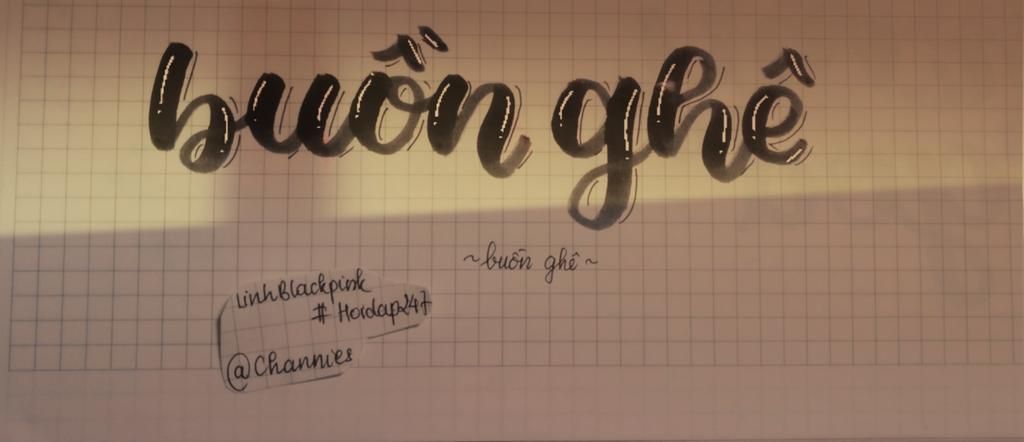 buồn ghê
~buồn ghê~
LinhBlackpink
# Hoidap247
@Channies